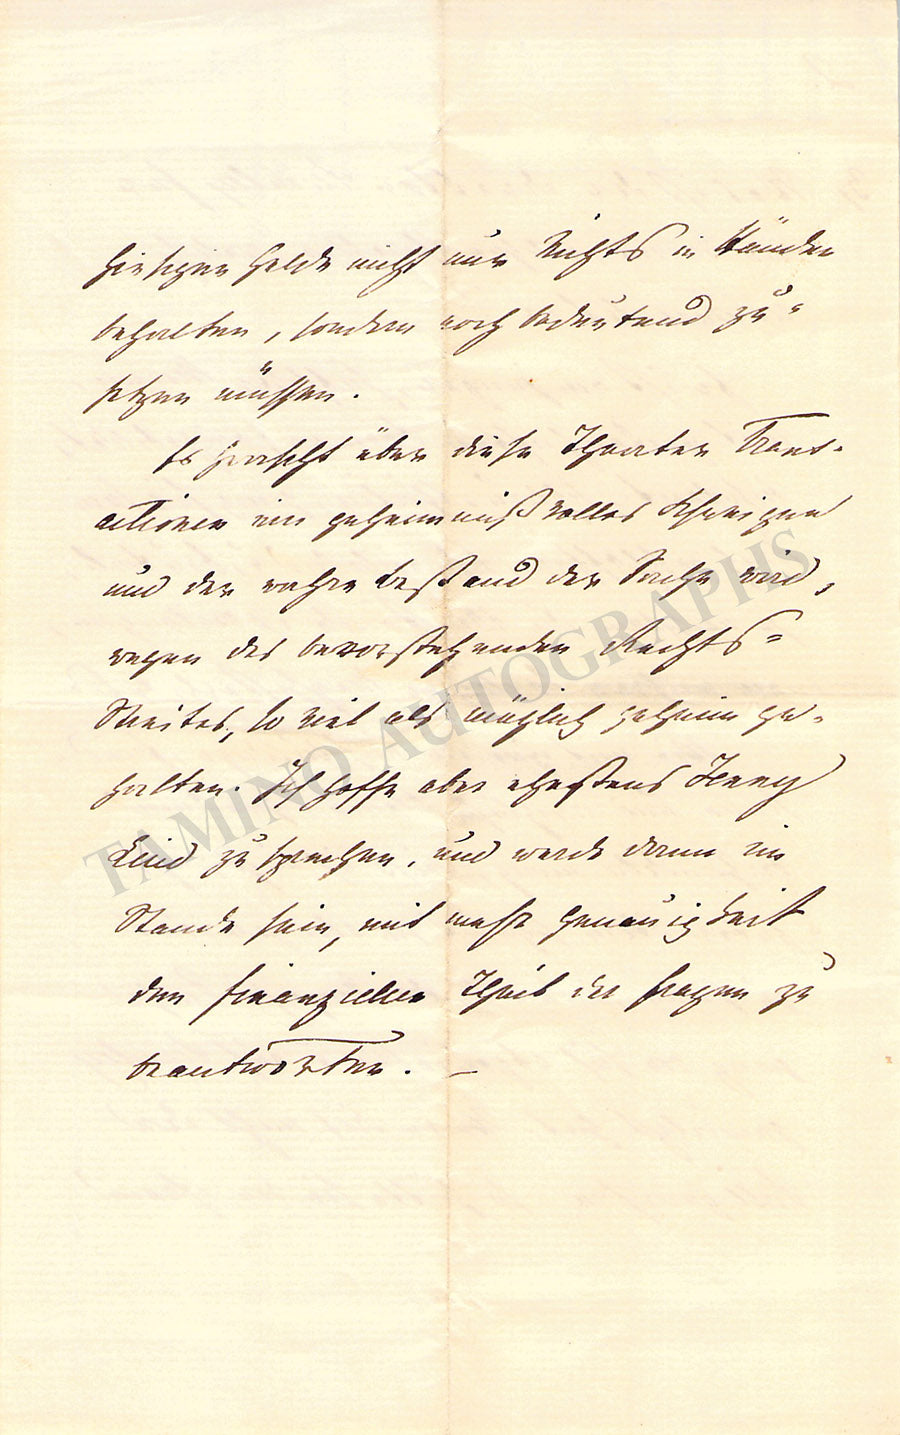 hiesigen Gelde nicht nur Nichts in Händen
behalten, sondern noch bedeutend zu-
setzen müssen.
Es herrscht über diese Theater Trans-
actionen ein geheimnißvolles Schweigen
und der wahre Bestand der Sache wird,
wegen des bevorstehenden Rechts=
Streites, so viel als möglich geheim ge-
halten. Ich hoffe aber ehestens Jenny
Lind zu sprechen, und werde dann im
Stande sein, mit mehr Genauigkeit
den finanziellen Theil der Fragen zu
beantworten. —
TAMINO AUTOGRAPHS